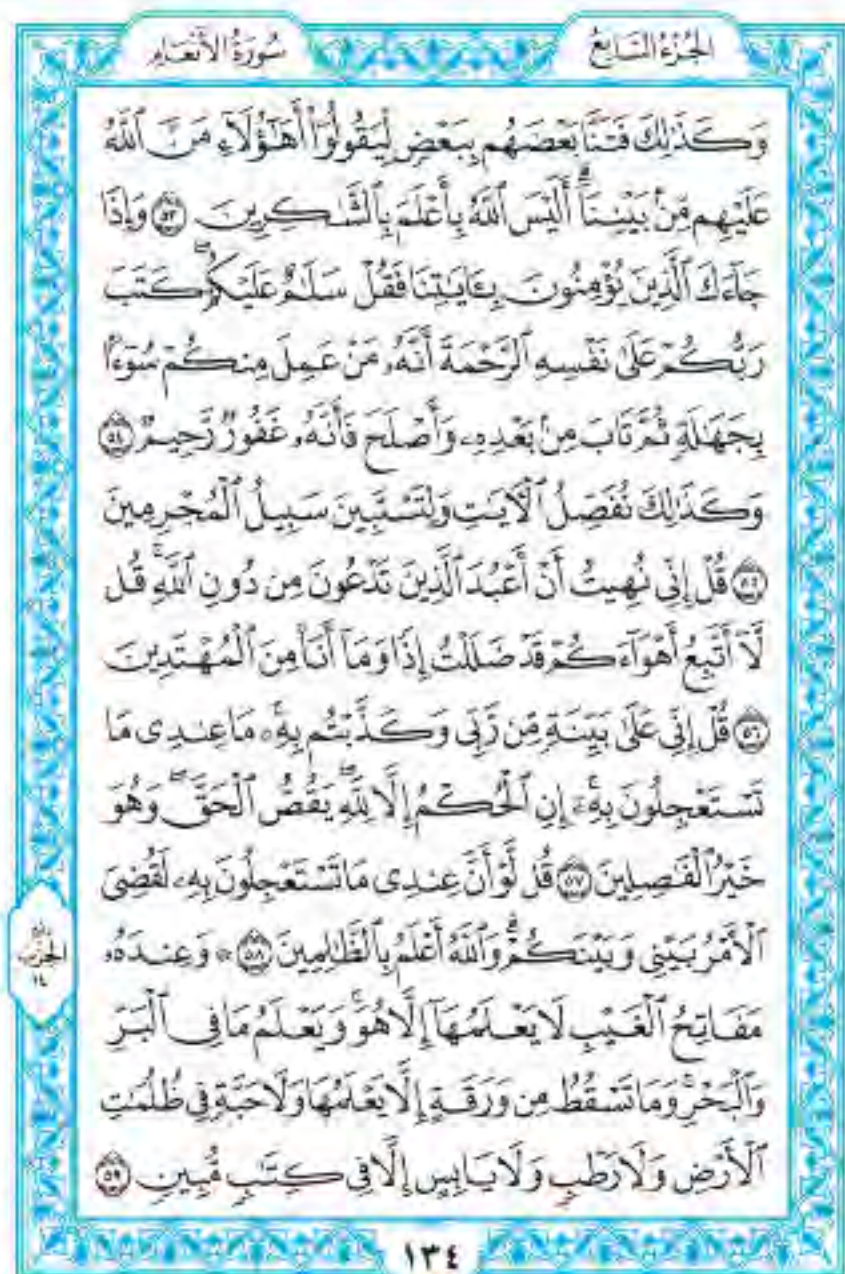 الجُزْءُ السَّابِعُ
سُورَةُ الأَنْعَامِ
وَكَذَٰلِكَ فَتَنَّا بَعْضَهُم بِبَعْضٍ لِّيَقُولُوٓاْ أَهَٰٓؤُلَآءِ مَنَّ ٱللَّهُ
عَلَيْهِم مِّنۢ بَيْنِنَآۗ أَلَيْسَ ٱللَّهُ بِأَعْلَمَ بِٱلشَّٰكِرِينَ ٥٣ وَإِذَا
جَآءَكَ ٱلَّذِينَ يُؤْمِنُونَ بِـَٔايَٰتِنَا فَقُلْ سَلَٰمٌ عَلَيْكُمْۖ كَتَبَ
رَبُّكُمْ عَلَىٰ نَفْسِهِ ٱلرَّحْمَةَ أَنَّهُۥ مَنْ عَمِلَ مِنكُمْ سُوٓءَۢا
بِجَهَٰلَةٖ ثُمَّ تَابَ مِنۢ بَعْدِهِۦ وَأَصْلَحَ فَأَنَّهُۥ غَفُورٌ رَّحِيمٌ ٥٤
وَكَذَٰلِكَ نُفَصِّلُ ٱلْأٓيَٰتِ وَلِتَسْتَبِينَ سَبِيلُ ٱلْمُجْرِمِينَ
٥٥ قُلْ إِنِّي نُهِيتُ أَنْ أَعْبُدَ ٱلَّذِينَ تَدْعُونَ مِن دُونِ ٱللَّهِۚ قُل
لَّآ أَتَّبِعُ أَهْوَآءَكُمْ قَدْ ضَلَلْتُ إِذٗا وَمَآ أَنَا۠ مِنَ ٱلْمُهْتَدِينَ
٥٦ قُلْ إِنِّي عَلَىٰ بَيِّنَةٖ مِّن رَّبِّي وَكَذَّبْتُم بِهِۦۚ مَا عِندِي مَا
تَسْتَعْجِلُونَ بِهِۦٓۚ إِنِ ٱلْحُكْمُ إِلَّا لِلَّهِۖ يَقُصُّ ٱلْحَقَّۖ وَهُوَ
خَيْرُ ٱلْفَٰصِلِينَ ٥٧ قُل لَّوْ أَنَّ عِندِي مَا تَسْتَعْجِلُونَ بِهِۦ لَقُضِيَ
ٱلْأَمْرُ بَيْنِي وَبَيْنَكُمْۗ وَٱللَّهُ أَعْلَمُ بِٱلظَّٰلِمِينَ ٥٨ ۞ وَعِندَهُۥ
مَفَاتِحُ ٱلْغَيْبِ لَا يَعْلَمُهَآ إِلَّا هُوَۚ وَيَعْلَمُ مَا فِي ٱلْبَرِّ
وَٱلْبَحْرِۚ وَمَا تَسْقُطُ مِن وَرَقَةٍ إِلَّا يَعْلَمُهَا وَلَا حَبَّةٖ فِي ظُلُمَٰتِ
ٱلْأَرْضِ وَلَا رَطْبٖ وَلَا يَابِسٍ إِلَّا فِي كِتَٰبٖ مُّبِينٖ ٥٩
الحِزْب
١٤
١٣٤